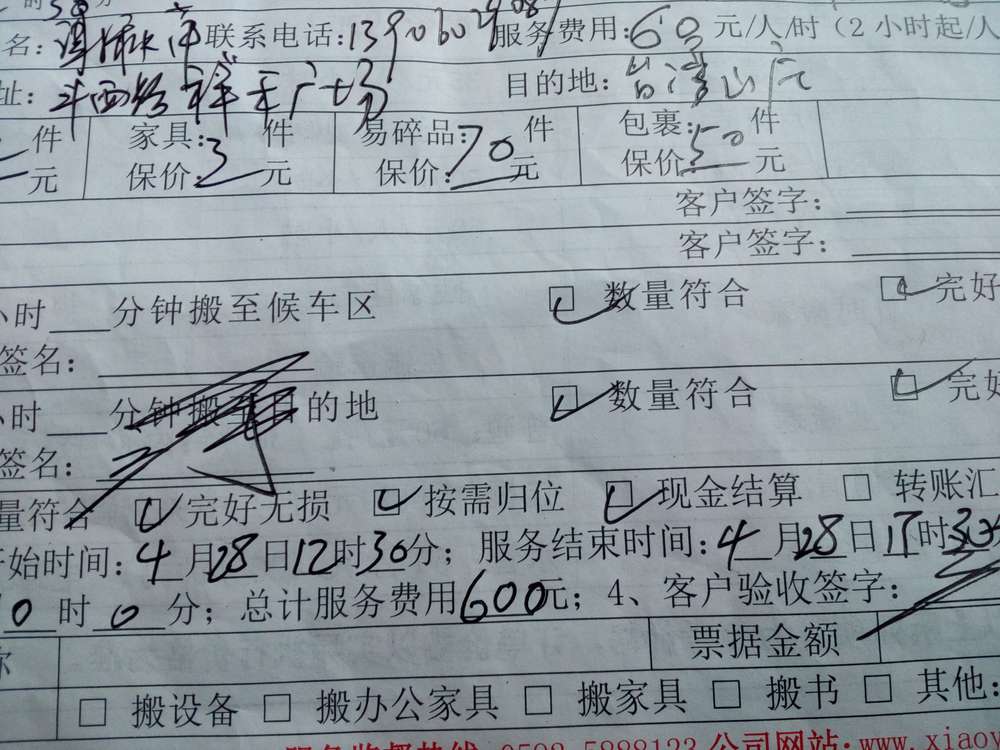 名: 联系电话:1390602 服务费用:60元/人/时(2小时起/人
址:斗西路祥禾广场 目的地:台湾山庄
件 家具: 件 易碎品: 件 包裹: 件
元 保价:3元 保价:70元 保价:50元
客户签字:
客户签字:
小时 分钟搬至候车区 数量符合 完好
签名:
小时 分钟搬至目的地 数量符合 完好
签名:
量符合 完好无损 按需归位 现金结算 □ 转账汇
开始时间:4月28日12时30分;服务结束时间:4月28日17时30分
0时0分;总计服务费用600元;4、客户验收签字:
称 票据金额
□ 搬设备 □ 搬办公家具 □ 搬家具 □ 搬书 □ 其他:
服务监督热线:0592-5888123 公司网站:www.xiaoy